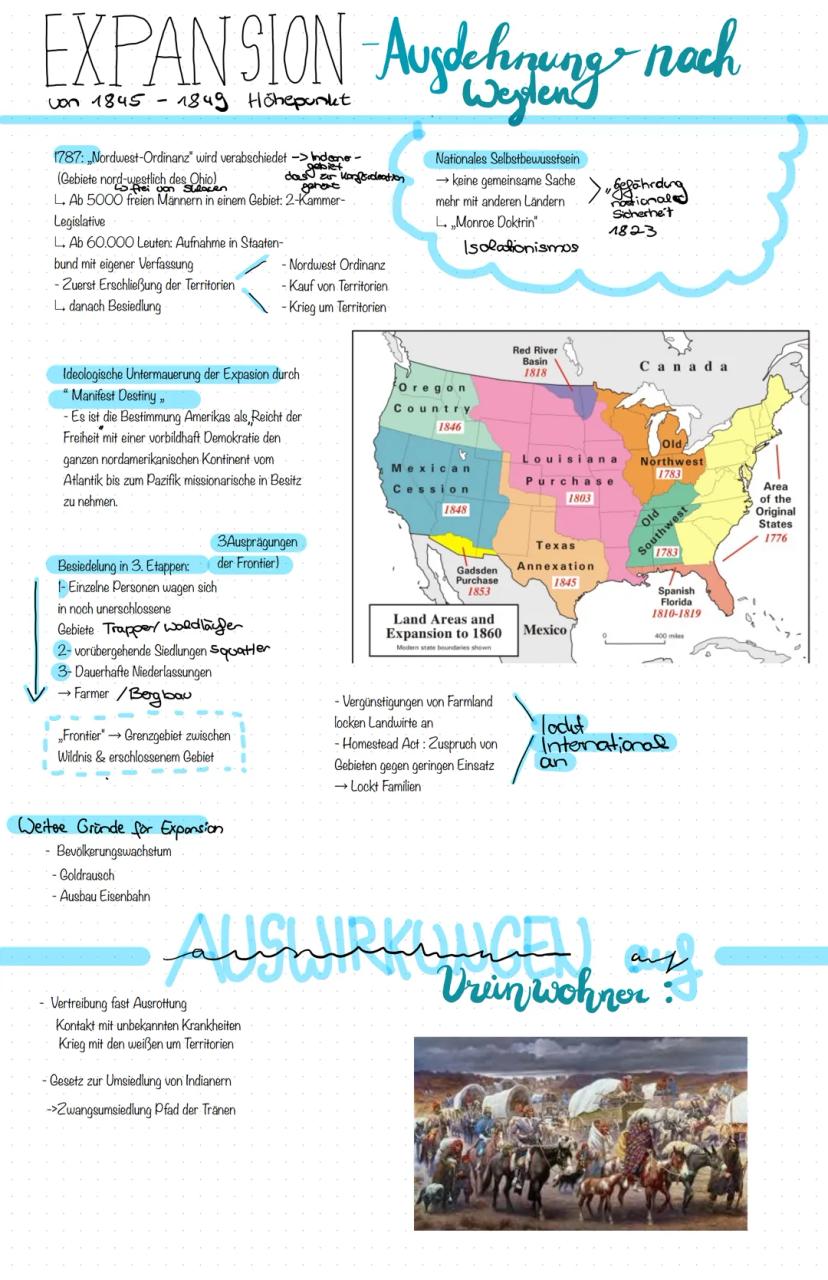 EXPANSION - Ausdehnung nach
Westen
von 1845 - 1849 Höhepunkt
1787: „Nordwest-Ordinanz" wird verabschiedet -> Indianer-
gebiet
(Gebiete nord-westlich des Ohio)
das zur Konföderation
gehört
↳ frei von Sklaven
↳ Ab 5000 freien Männern in einem Gebiet: 2-Kammer-
Legislative
↳ Ab 60.000 Leuten: Aufnahme in Staaten-
bund mit eigener Verfassung
- Zuerst Erschließung der Territorien
↳ danach Besiedlung
- Nordwest Ordinanz
- Kauf von Territorien
- Krieg um Territorien
Nationales Selbstbewusstsein
→ keine gemeinsame Sache
mehr mit anderen Ländern
↳ „Monroe Doktrin"
Isolationismos
„Gefährdung
nationale
Sicherheit
1823
Ideologische Untermauerung der Expasion durch
" Manifest Destiny „
- Es ist die Bestimmung Amerikas als„Reicht der
Freiheit" mit einer vorbildhaft Demokratie den
ganzen nordamerikanischen Kontinent vom
Atlantik bis zum Pazifik missionarische in Besitz
zu nehmen.
Red River
Basin
1818
Canada
Oregon
Country
1846
Mexican
Cession
1848
Louisiana
Purchase
1803
Old
Northwest
1783
Old
Southwest
1783
Area
of the
Original
States
1776
Texas
Annexation
1845
Gadsden
Purchase
1853
Spanish
Florida
1810-1819
Mexico
Land Areas and
Expansion to 1860
Modern state boundaries shown
0 400 miles
3Ausprägungen
der Frontier)
Besiedelung in 3. Etappen:
1- Einzelne Personen wagen sich
in noch unerschlossene
Gebiete Trapper/Waldläufer
2- vorübergehende Siedlungen Squatter
3- Dauerhafte Niederlassungen
→ Farmer /Bergbau
„Frontier" → Grenzgebiet zwischen
Wildnis & erschlossenem Gebiet
- Vergünstigungen von Farmland
locken Landwirte an
- Homestead Act : Zuspruch von
Gebieten gegen geringen Einsatz
→ Lockt Familien
lockt
International
an
Weitee Gründe für Expansion
- Bevölkerungswachstum
- Goldrausch
- Ausbau Eisenbahn
AUSWIRKUNGEN auf
Ureinwohner :
- Vertreibung fast Ausrottung
Kontakt mit unbekannten Krankheiten
Krieg mit den weißen um Territorien
- Gesetz zur Umsiedlung von Indianern
->Zwangsumsiedlung Pfad der Tränen